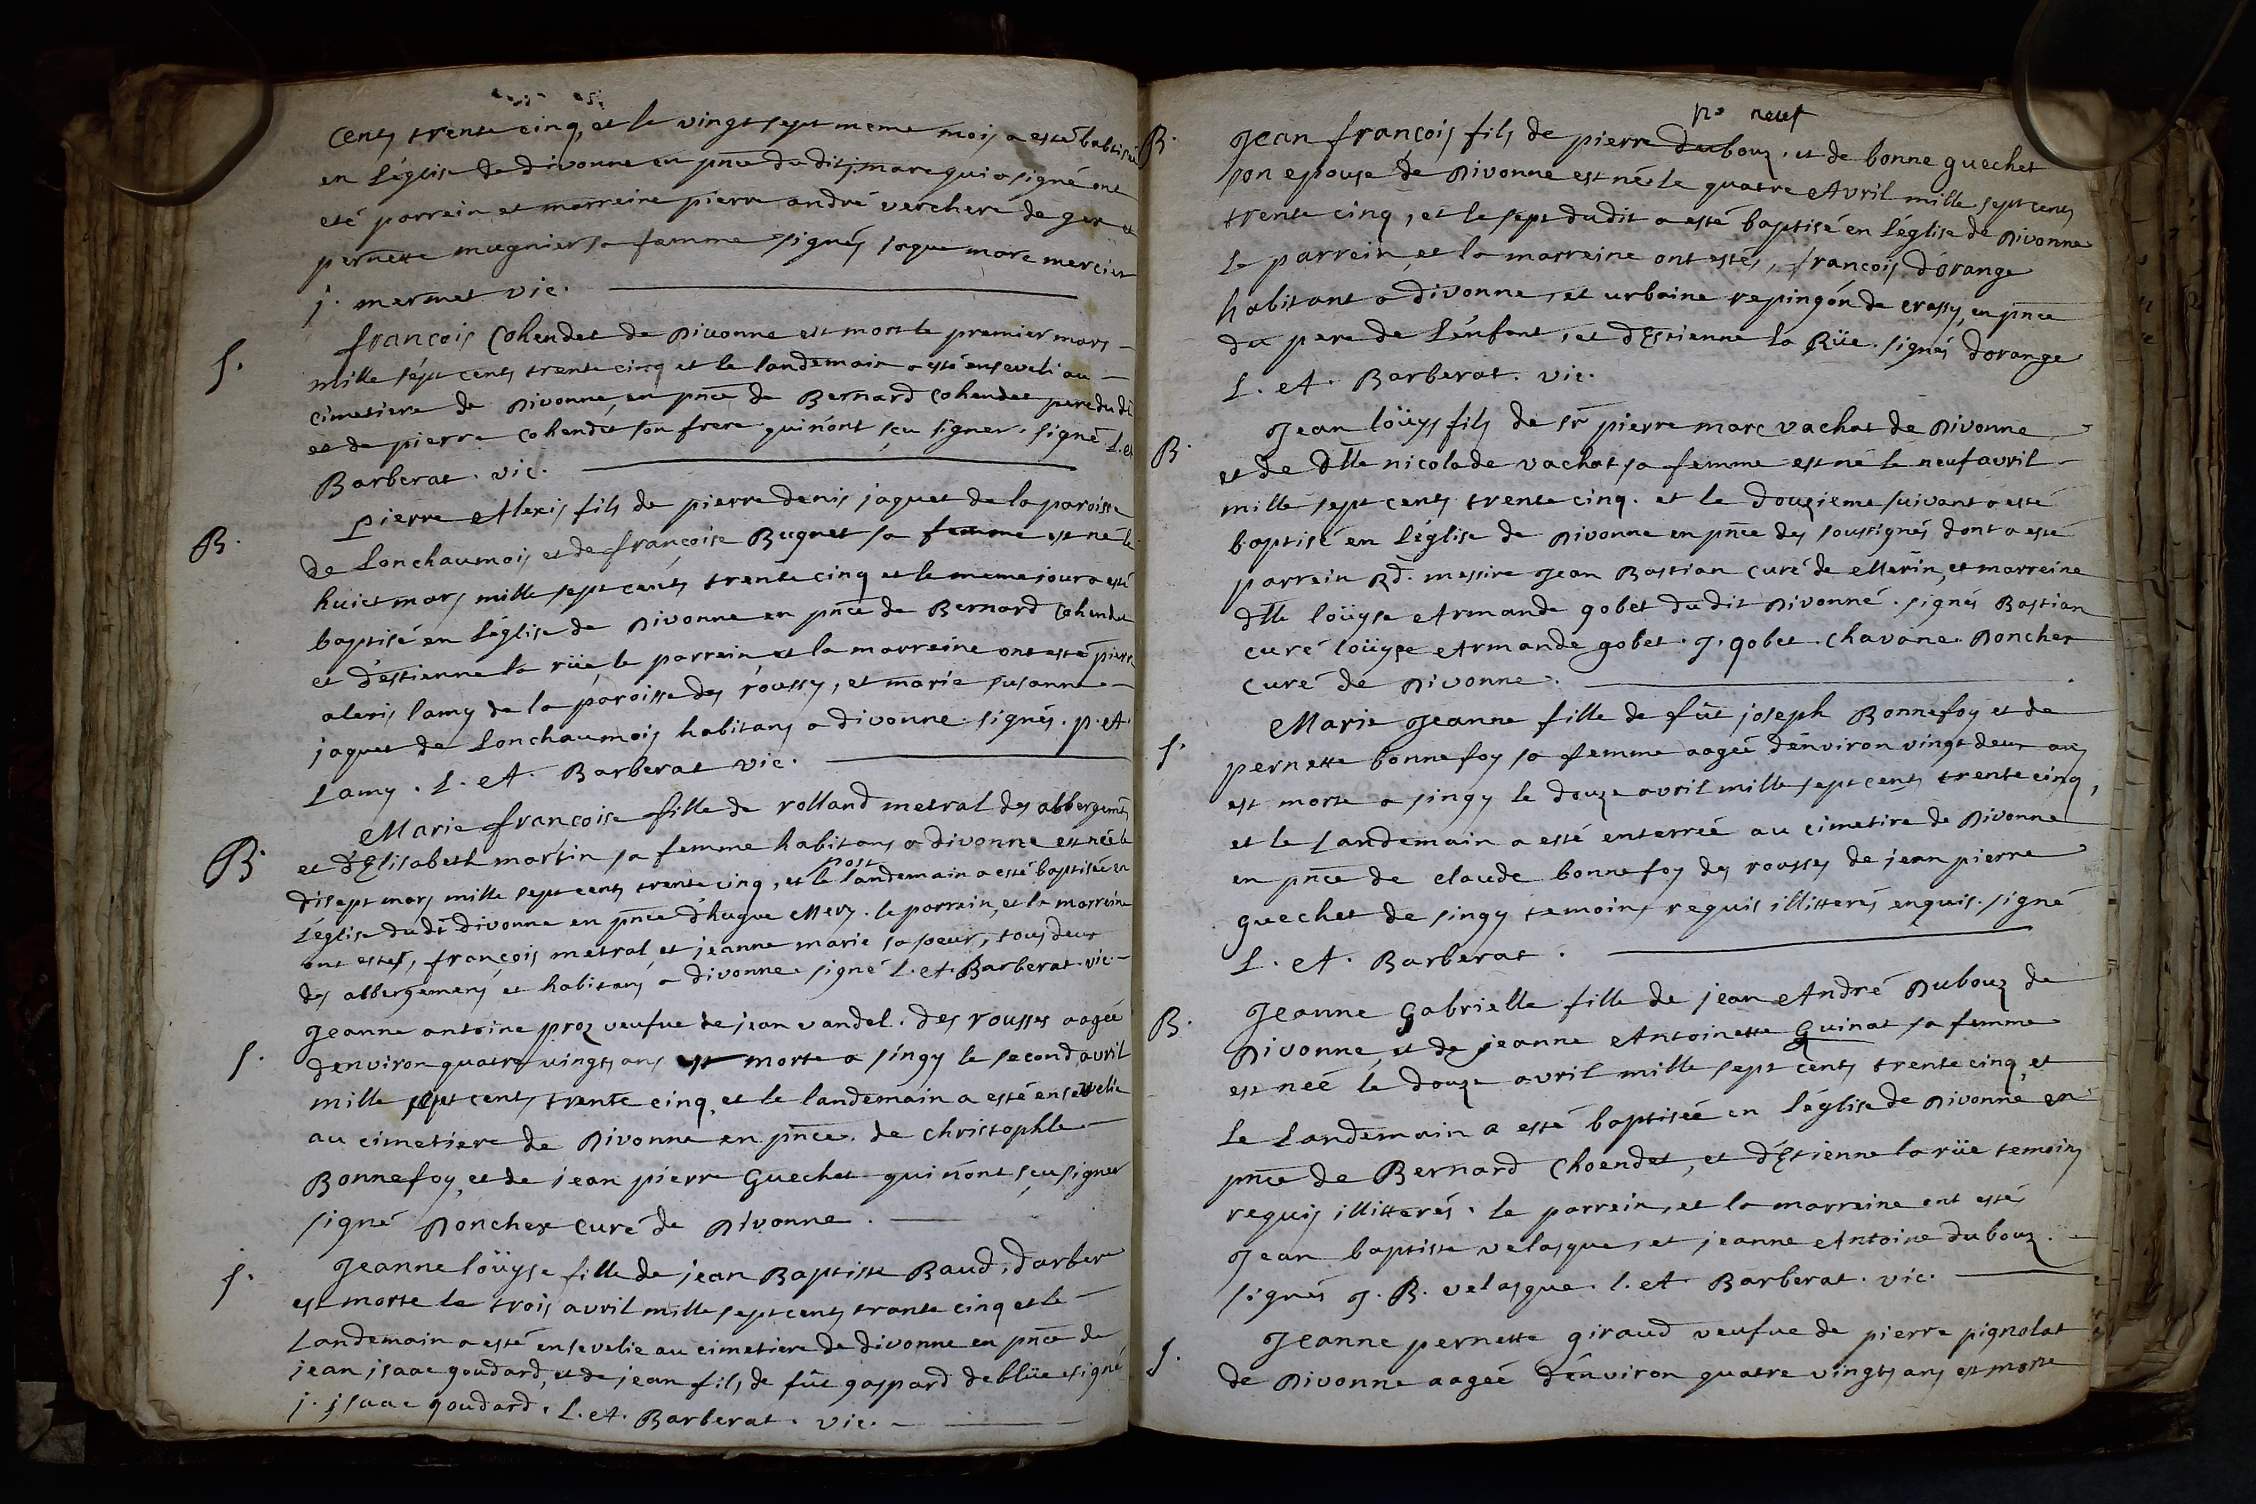 cents trente cinq, et le vingt sept meme mois a esté babtisé
en L'église de divonne en pn̄ce du dit j: marc qui a signé ont
eté parrein et marreine pierre andré vercheré de gex et
pernette mugnier sa famme signés jaque marc mercier
j. mermet vic.
S.
françois Cohendet de Divonne est mort le premier mars
mille sept cents trente cinq et le landemain a esté enseveli au
cimetiere de Divonne, en pn̄ce de Bernard Cohendet pere du dt
et de pierre Cohendet son frere qui n'ont sçu signer. signé L. et
Barberat. vic.
B.
Pierre Alexis fils de pierre denis jaquet de la paroisse
de Lonchaumois et de françoise Bugnet sa femme est né le
huict mars mille sept cents trente cinq et le meme jour a esté
baptisé en L'église de Divonne en pn̄ce de Bernard Cohendet
et d'estienne la rüe, le parrein et la marreine ont esté pierre
alexis lamy de la paroisse des roussy, et marie susanne
jaquet de Lonchaumois habitans a divonne. signés. p. A.
Lamy. L. A. Barberat vic.
B.
Marie françoise fille de rolland metral des abbergemens
et d'Elisabeth martin sa femme habitans a divonne est née le
disept mars mille sept cents trente cinq, et le post landemain a esté baptisée en
L'église du dt divonne en pn̄ce d'hugue Mery. le parrain, et la marreine
ont estés, françois metral et jeanne marie sa soeur, tous deux
des abbergemens et habitans a divonne signé L. A. Barberat. vic.
S.
Jeanne antoine proz veufue de jean vandel. des rousses aagée
d'environ quatre vingts ans est morte a singy le second avril
mille sept cents trente cinq, et le landemain a esté ensevelie
au cimetiere de Divonne en pn̄ce. de christophle
Bonnefoy, et de jean pierre Guechet qui n'ont sçu signer
signé Ponchex curé de Divonne.
S.
Jeanne loüyse fille de jean Baptiste Baud, d'arbere
est morte le trois avril mille sept cents trante cinq et le
Landemain a esté ensevelie au cimetiere de divonne en pn̄ce de
jean isaac goudard, et de jean fils de fût gaspard deblüe signé
j. jsaac goudard. L. A. Barberat. vic.
no neuf
B.
Jean françois fils de pierre dubouz. et de bonne guechet
son epouse de Divonne est né le quatre Avril mille sept cents
trente cinq, et le sept du dit a esté baptisé en L'église de Divonne
Le parrein, et la marreine ont estés, françois d'orange
habitant a divonne, et urbaine repingón de crassy, en pn̄ce
du pere de L'enfant, et d'Estienne la Rüe. signés dorange
L. A. Barberat. vic.
B.
Jean loüys fils de sr pierre marc vachat de Divonne
et de dlle nicolade vachat sa femme est né le neuf avril
mille sept cents trente cinq. et le douzieme suivant a esté
baptisé en L'église de Divonne en pn̄ce des soussignés dont a esté
parrein Rd. messire Jean Bastian curé de Merin, et marreine
dlle loüyse Armande gobet du dit Divonné. signés Bastian
curé loüyse Armande gobet. J. gobet. Chavane. Ponchex
curé de Divonne.
S.
Marie Jeanne fille de fût joseph Bonnefoy et de
pernette bonnefoy sa femme aagée d'environ vingt deux ans
est morte a singy le douze avril mille sept cents trente cinq,
et le Landemain a esté enterrée au cimetire de Divonne
en pn̄ce de claude bonnefoy des rousses de jean pierre
guechet de singy temoins requis illitterés enquis. signé
L. A. Barberat.
B.
Jeanne Gabrielle fille de jean André Dubouz de
Divonne, et de jeanne Antoinette Guinat sa femme
est neé le douze avril mille sept cents trente cinq, et
Le Landemain a esté baptisée en L'église de Divonne en
pn̄ce de Bernard Choendet, et d'Estienne la rüe temoins
requis illitterés. le parrein, et la marreine ont estés
Jean baptiste velasque, et jeanne Antoine dubouz.
signés J. B. velasque. l. A Barberat. vic.
S.
Jeanne pernette giraud veufue de pierre pignolat
de Divonne aageé d'environ quatre vingts ans est morte